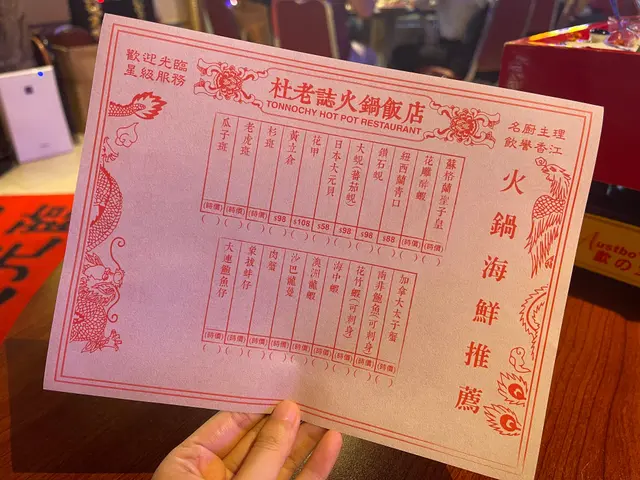 歡迎光臨
星級服務
杜老誌火鍋飯店
TONNOCHY HOT POT RESTAURANT
名廚主理
飲譽香江
火鍋海鮮推薦
蘇格蘭崖子皇 (時價) ( )
花雕醉蝦 (時價) ( )
紐西蘭青口 $88 ( )
鎖石蜆 $98 ( )
大蜆(蕃茄蜆) $98 ( )
日本大元貝 $58 ( )
花甲 $108 ( )
黃立倉 $98 ( )
杉斑 (時價) ( )
老虎斑 (時價) ( )
瓜子斑 (時價) ( )
加拿大太子蟹 (時價) ( )
南非鮑魚(可刺身) (時價) ( )
花竹蝦(可刺身) (時價) ( )
海中蝦 (時價) ( )
澳洲龍蝦 (時價) ( )
沙巴龍躉 (時價) ( )
肉蟹 (時價) ( )
象拔蚌仔 (時價) ( )
大連鮑魚仔 (時價) ( )